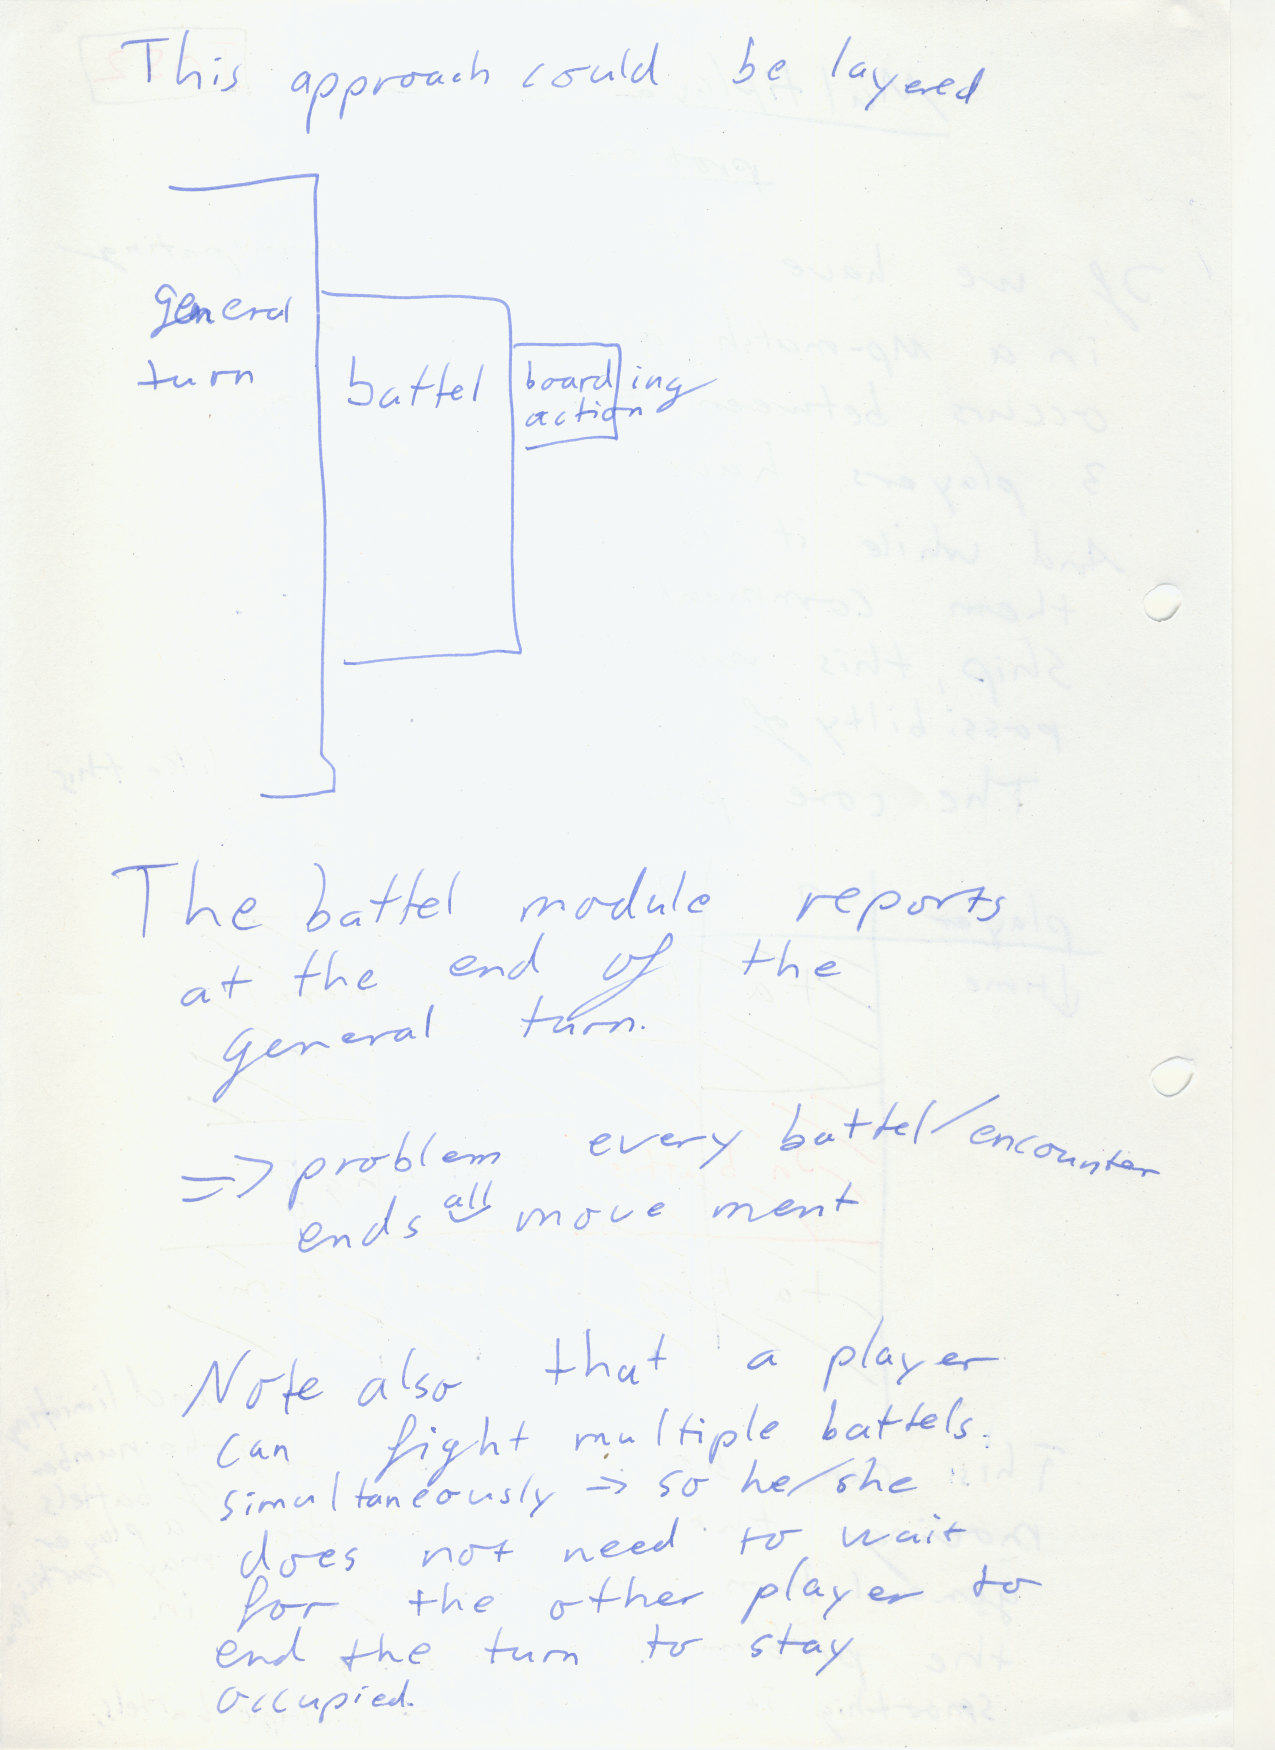 This approach could be layered
general
turn
battel
boarding
action
The battel module reports
at the end of the
general turn.
=> problem every battel/encounter
ends all move ment
Note also that a player
can fight multiple battels.
simultaneously -> so he/she
does not need to wait
for the other player to
end the turn to stay
occupied.